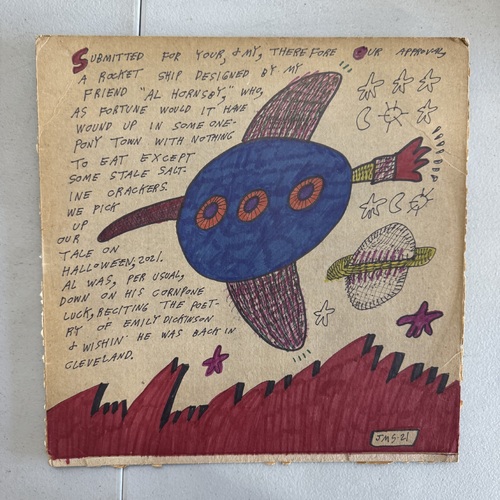 SUBMITTED FOR YOUR, & MY, THEREFORE OUR APPROVAL,
A ROCKET SHIP DESIGNED BY MY
FRIEND "AL HORNSBY," WHO,
AS FORTUNE WOULD IT HAVE
WOUND UP IN SOME ONE-
PONY TOWN WITH NOTHING
TO EAT EXCEPT
SOME STALE SALT-
INE CRACKERS.
WE PICK
UP
OUR
TALE ON
HALLOWEEN, 2021.
AL WAS, PER USUAL,
DOWN ON HIS CORNPONE
LUCK, RECITING THE POET-
RY OF EMILY DICKINSON
& WISHIN' HE WAS BACK IN
CLEVELAND.
JMS·21